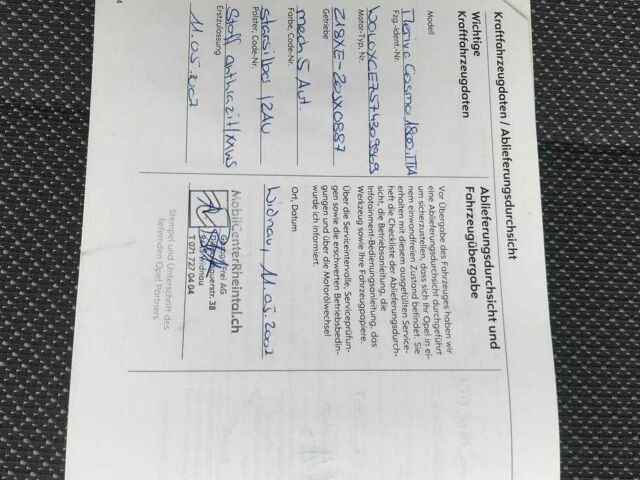 Kraftfahrzeugdaten / Ablieferungsdurchsicht
Wichtige
Kraftfahrzeugdaten
Modell
Cosmo 1800i
Fzg.-Ident.-Nr.
Motor-Typ, Nr.
Z18XE - 20XX0887
Getriebe
mech 5 Aut.
Farbe, Code-Nr.
starsilber / 2AU
Polster, Code-Nr.
Stoff anthrazit /
Erstzulassung
11.05.2007
Ablieferungsdurchsicht und
Fahrzeugübergabe
Vor Übergabe des Fahrzeuges haben wir
eine Ablieferungsdurchsicht durchgeführt
um sicherzustellen, dass sich Ihr Opel in ei-
nem einwandfreien Zustand befindet. Sie
erhalten mit diesem ausgefüllten Service-
heft die Checkliste der Ablieferungsdurch-
sicht, die Betriebsanleitung, die
Infotainment-Bedienungsanleitung, das
Werkzeug sowie Ihre Fahrzeugpapiere.
Über die Serviceintervalle, Serviceprüfun-
gen sowie die erschwerten Betriebsbedin-
gungen und über die Motorölwechsel
wurde ich informiert.
Widnau, 11.05.2007
Ort, Datum
MobilCenterRheintal.ch
AG
str. 38
Widnau
T 071 727 04 04
Stempel und Unterschrift des
liefernden Opel Partners
4